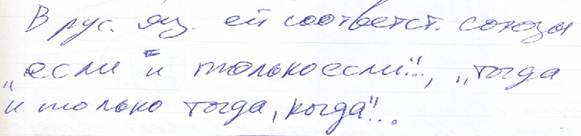 В рус. яз. ей соответст. союзы
„если и только если"..., „тогда
и только тогда, когда"...